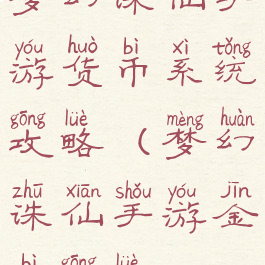 梦幻诛仙手
yóu huò bì xì tǒng
游货币系统
gōng lüè mèng huàn
攻略（梦幻
zhū xiān shǒu yóu jīn
诛仙手游金
bì gōng lüè